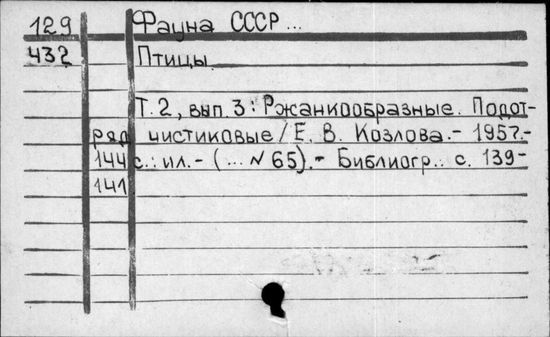 129 Фауна СССР ...
432 Птицы
Т. 2, вып. 3: Ржанкообразные. Подот-
ряд чистиковые / Е. В. Козлова. - 1957. -
144 с.: ил. - (... № 65). - Библиогр.: с. 139-
141